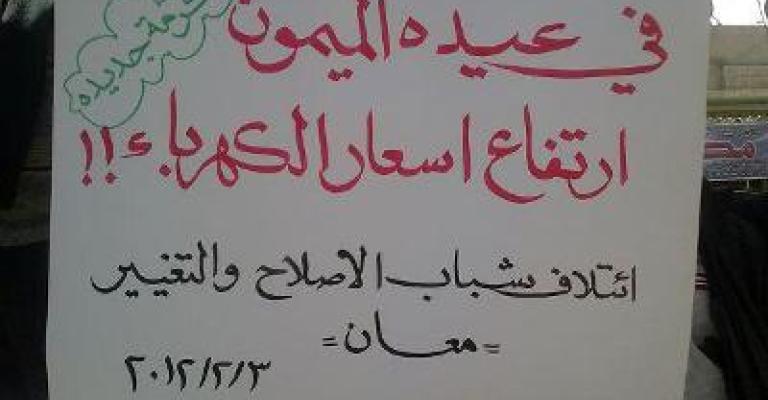 جديده
في عيده الميمون
ارتفاع اسعار الكهرباء !!
ائتلاف شباب الاصلاح والتغيير
= معان =
٢٠١٢/٢/٣